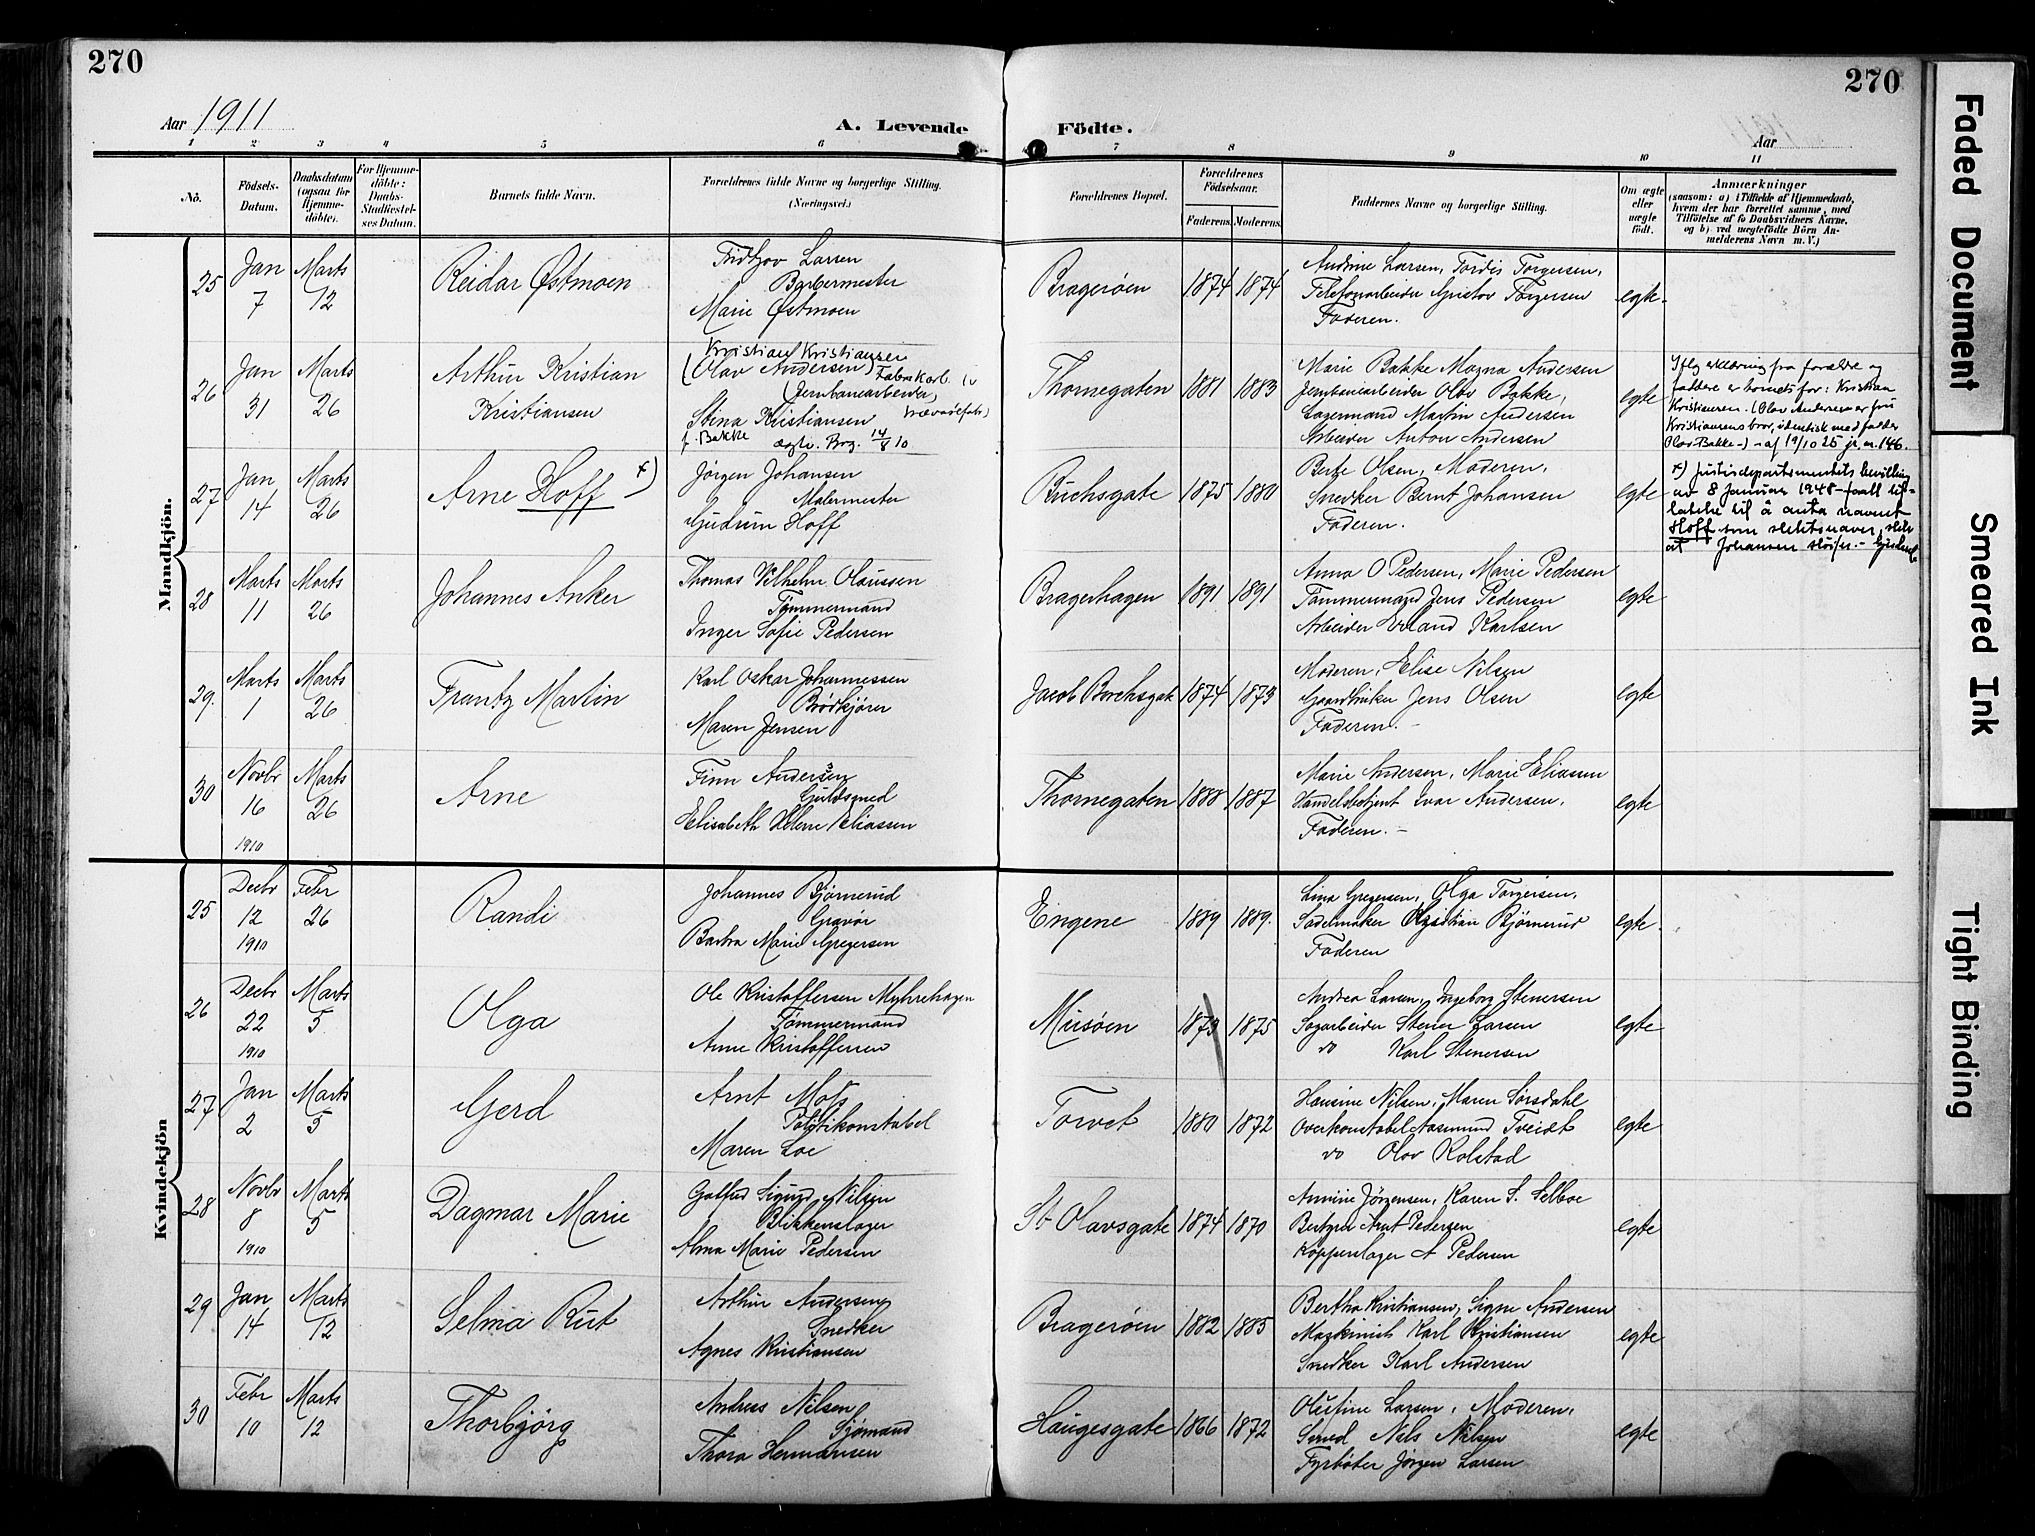 270
270
Aar 1911
A. Levende Födte.
Aar
1 2 3 4 5 6 7 8 9 10 11
No.
Födsels-Datum.
Daabsdatum (ogsaa for Hjemme-döbte).
For Hjemme-döbte: Daabs-Stadfæstel-ses Datum.
Barnets fulde Navn.
Forældrenes fulde Navne og borgerlige Stilling.
(Næringsvei.)
Forældrenes Bopæl.
Forældrenes Födselsaar.
Faderens. Moderens.
Faddernes Navne og borgerlige Stilling.
Om ægte eller uægte födt.
Anmærkninger
(saasom: a) i Tilfælde af Hjemmedaab,
hvem der har forrettet samme, med
Tilföielse af to Daabsvidners Navne.
og b) ved uægtefödte Börn An-
melderens Navn m. V.)
Mandkjön.
25 Jan 7 Marts 12 Reidar Østmoen
Fridtjov Larsen
Barbermester
Marie Østmoen
Bragerøen 1874 1874
Andine Larsen, Tordis Torgersen,
Telefonarbeider Gustav Torgersen
Faderen.
egte.
26 Jan 31 Marts 26 Arthur Kristian
Kristiansen
Kristian Kristiansen
(Olav Andersen) Fabrikarb.
(Jernbanearbeider,
Stina Kristiansen
f. Bakke ægtev. Brag. 14/8 10
Thornegaten 1881 1883
Marie Bakke Magna Andersen
Jernbanearbeider Olav Bakke,
Lagermand Martin Andersen
Arbeider Anton Andersen
egte
Iflg erklæring fra forældre og
faddere er barnets far: Kristian
Kristiansen. (Olav Andersen er fru
Kristiansens bror, identisk med fadder
Olav Bakke-) - af 19/10 25 jr. nr. 146.
27 Jan 14 Marts 26 Arne Hoff x)
Jørgen Johansen
Malermester
Gudrun Hoff
Buchsgate 1875 1880
Berte Olsen, Moderen,
Snedker Bernt Johansen
Faderen.
egte
x) Justisdepartementets bevilling
av 8 januar 1948 - faatt til-
latelse til å anta navnet
Hoff som slektsnavn, slik
at Johansen sløifes.-
28 Marts 11 Marts 26 Johannes Anker
Thomas Vilhelm Olaussen
Tømmermand
Inger Sofie Pedersen
Bragerhagen 1891 1891
Anna O Pedersen, Marie Pedersen
Tømmermand Jens Pedersen
Arbeider Erland Karlsen
egte
29. Marts 1 Marts 26 Frantz Martin
Karl Oskar Johannessen
Brødkjører
Maren Jensen
Jacob Borchsgate 1874 1873
Moderen, Elise Nilsen
Gaardbruker Jens Olsen
Faderen.-
egte
30 Novbr 16 1910 Marts 26 Arne
Finn Andersen
Guldsmed
Elisabeth Helene Eliassen
Thornegaten 1888 1887
Marie Andersen, Marie Eliassen
Handelsbetjent Ivar Andersen.
Faderen.-
egte
Kvindekjön
25 Decbr 12 1910 Febr 26 Randi
Johannes Bjørnerud
Gravør
Barbra Marie Gregersen
Engene 1889 1889.
Lina Gregersen, Olga Torgersen.
Sadelmaker Christian Bjørnerud
Faderen
egte.
26 Decbr 22 1910 Marts 5 Olga
Ole Kristoffersen Myhrehagen
Tømmermand
Anne Kristoffersen
Musøen 1873 1875
Andrea Larsen, Ingeborg Stenersen
Sagarbeider Stener Larsen
do Karl Stenersen
egte
27 Jan 2 Marts 5 Gerd
Arnt Moss
Politikonstabel
Maren Loe
Torvet 1880 1872
Hansine Nilsen, Maren Sørsdahl
Overkonstabel Aasmund Tveidt
do Olav Kolstad
egte
28 Novbr 8 1910 Marts 5 Dagmar Marie
Gotfred Sigurd Nilsen
Blikkenslager
Alma Marie Pedersen
St Olavsgate 1874 1870
Annine Jørgensen, Karen S. Selboe
Arnt Pedersen
Kopperslager A Pedersen
egte
29 Jan 14 Marts 12 Selma Rut
Arthur Andersen
Snedker
Agnes Kristiansen
Bragerøen 1882 1885
Bertha Kristiansen, Signe Andersen
Maskinist Karl Kristiansen
Snedker Karl Andersen
egte
30 Febr 10 Marts 12 Thorbjørg
Andreas Nilsen
Sjømand
Thora Hermansen
Haugesgate 1866 1872
Olustine Larsen, Moderen,
Smed Nils Nilsen
Fyrbøter Jørgen Larsen
egte
Faded Document
Smeared Ink
Tight Binding